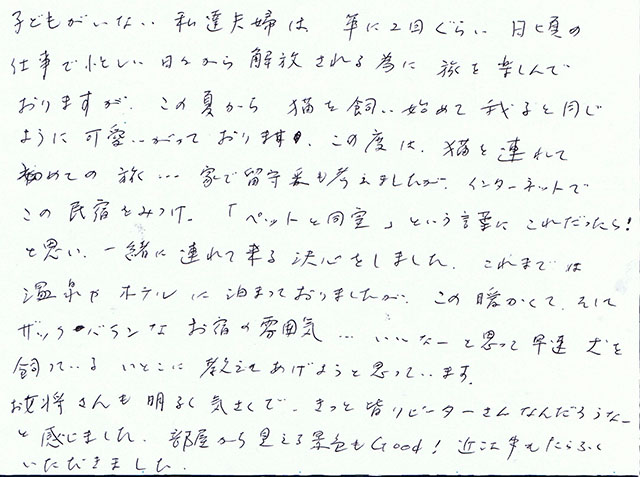 子どもがいない私達夫婦は 年に2回ぐらい 日頃の
仕事で忙しい日々から 解放される為に 旅を楽しんで
おりますが、この夏から 猫を飼い始めて 我子と同じ
ように可愛いがっております。この度は、猫を連れて
初めての旅… 家で留守番も考えましたが、インターネットで
この民宿をみつけ、「ペットと同室」という言葉に これだったら!
と思い、一緒に連れて来る決心をしました。これまでは
温泉やホテルに泊まっておりましたが、この暖かくて、そして
ザックバランな お宿の雰囲気… いいなーと思って早速 犬を
飼っている いとこに 教えてあげようと思っています。
お女将さんも明るく気さくで、きっと皆リピーターさんなんだろうなー
と感じました。部屋から見える景色もGood! 近江牛もたらふく
いただきました。